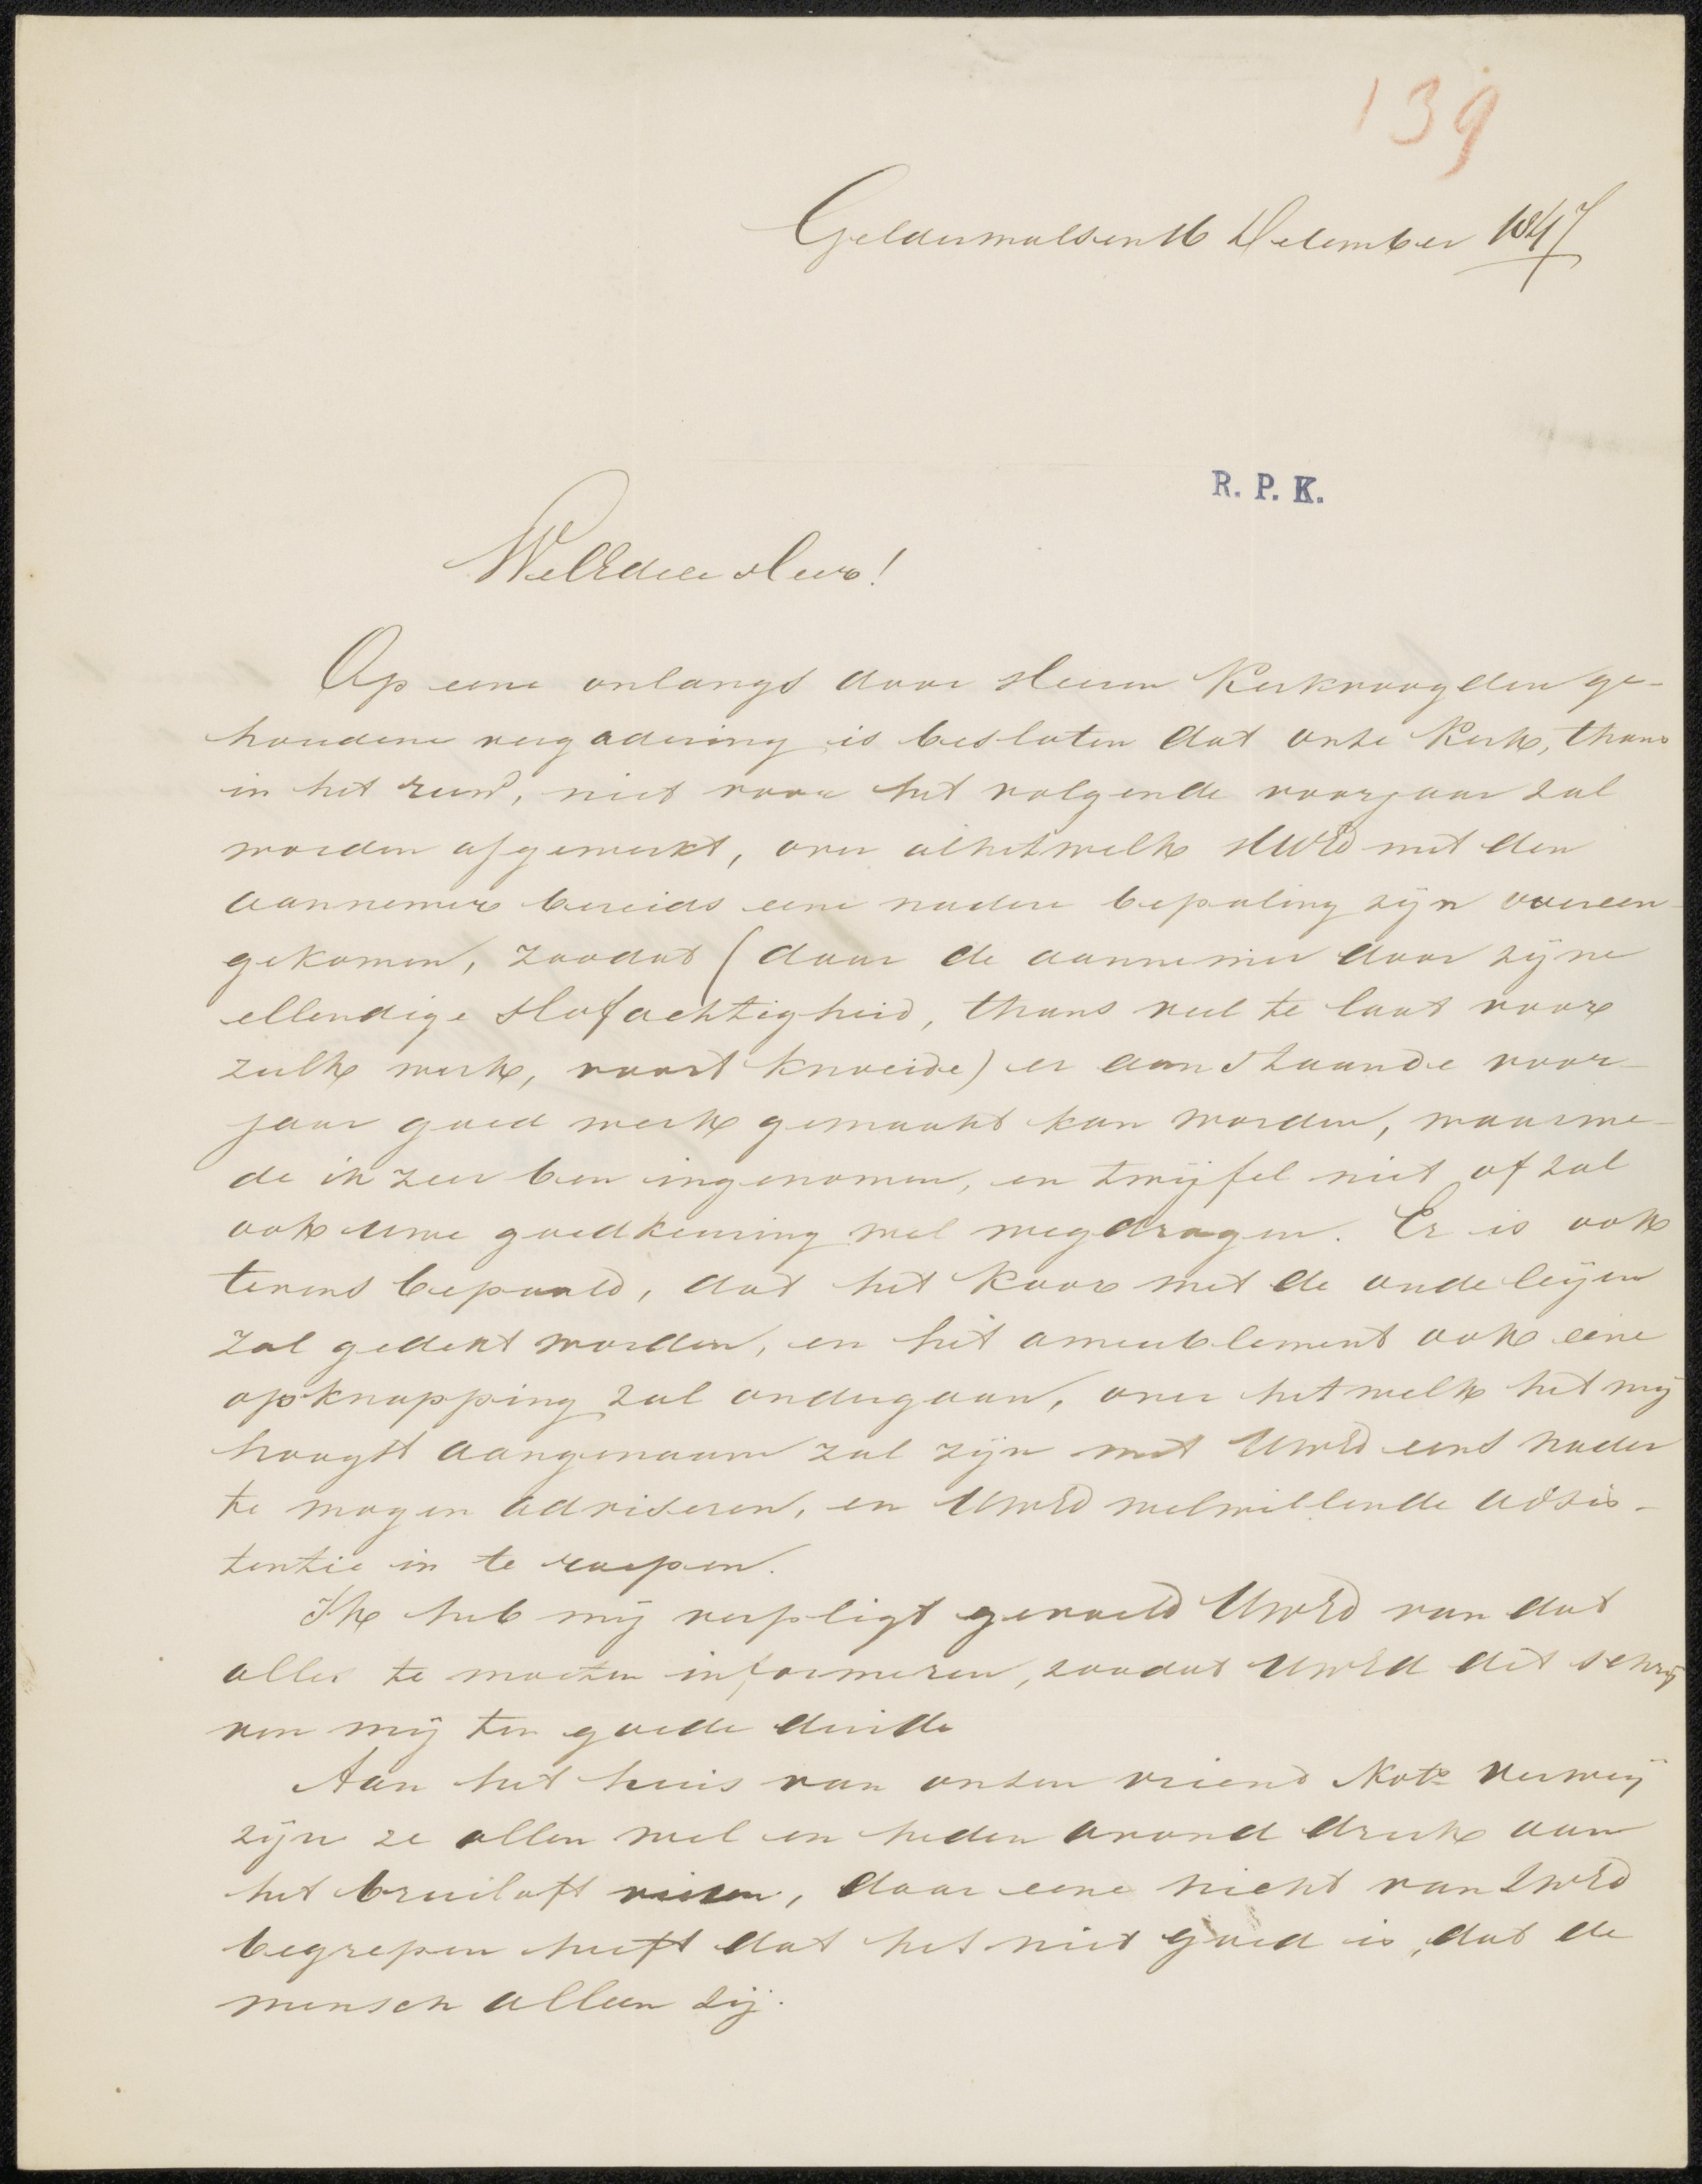 139
Geldermalsen 16 December 1847
R. P. K.
WelEdele Heer!
Op eene onlangs door Heeren Kerkvoogden ge-
houdene vergadering is besloten dat onze Kerk, thans
in het ruw, niet voor het volgende voorjaar zal
worden afgewerkt, over alhetwelk HWEd met den
aannemer bereids eene nadere bepaling zijn overeen-
gekomen, zoodat (daar de aannemer door zijne
ellendige slofachtigheid, thans veel te laat voor
zulk werk, voort knoeide) er aanstaande voor-
jaar goed werk gemaakt kan worden, waarme-
de ik zeer ben ingenomen, en twijfel niet of zal
ook uwe goedkeuring wel wegdragen. Er is ook
tevens bepaald, dat het Koor met de oude leijen
zal gedekt worden, en het ameublement ook eene
opknapping zal ondergaan, over hetwelk het mij
hoogst aangenaam zal zijn met UwEd eens nader
te mogen adviseren, en UwEd welwillende adsis-
tentie in te roepen.
Ik heb mij verpligt gevoeld UwEd van dat
alles te moeten informeren, zoodat UwEd dit schrij
ven mij ten goede duide
Aan het huis van onzen vriend Nots Verweij
zijn ze allen wel en heden avond druk aan
het bruiloft vieren, daar eene nicht van ZwEd
begrepen heeft dat het niet goed is, dat de
mensch alleen zij.